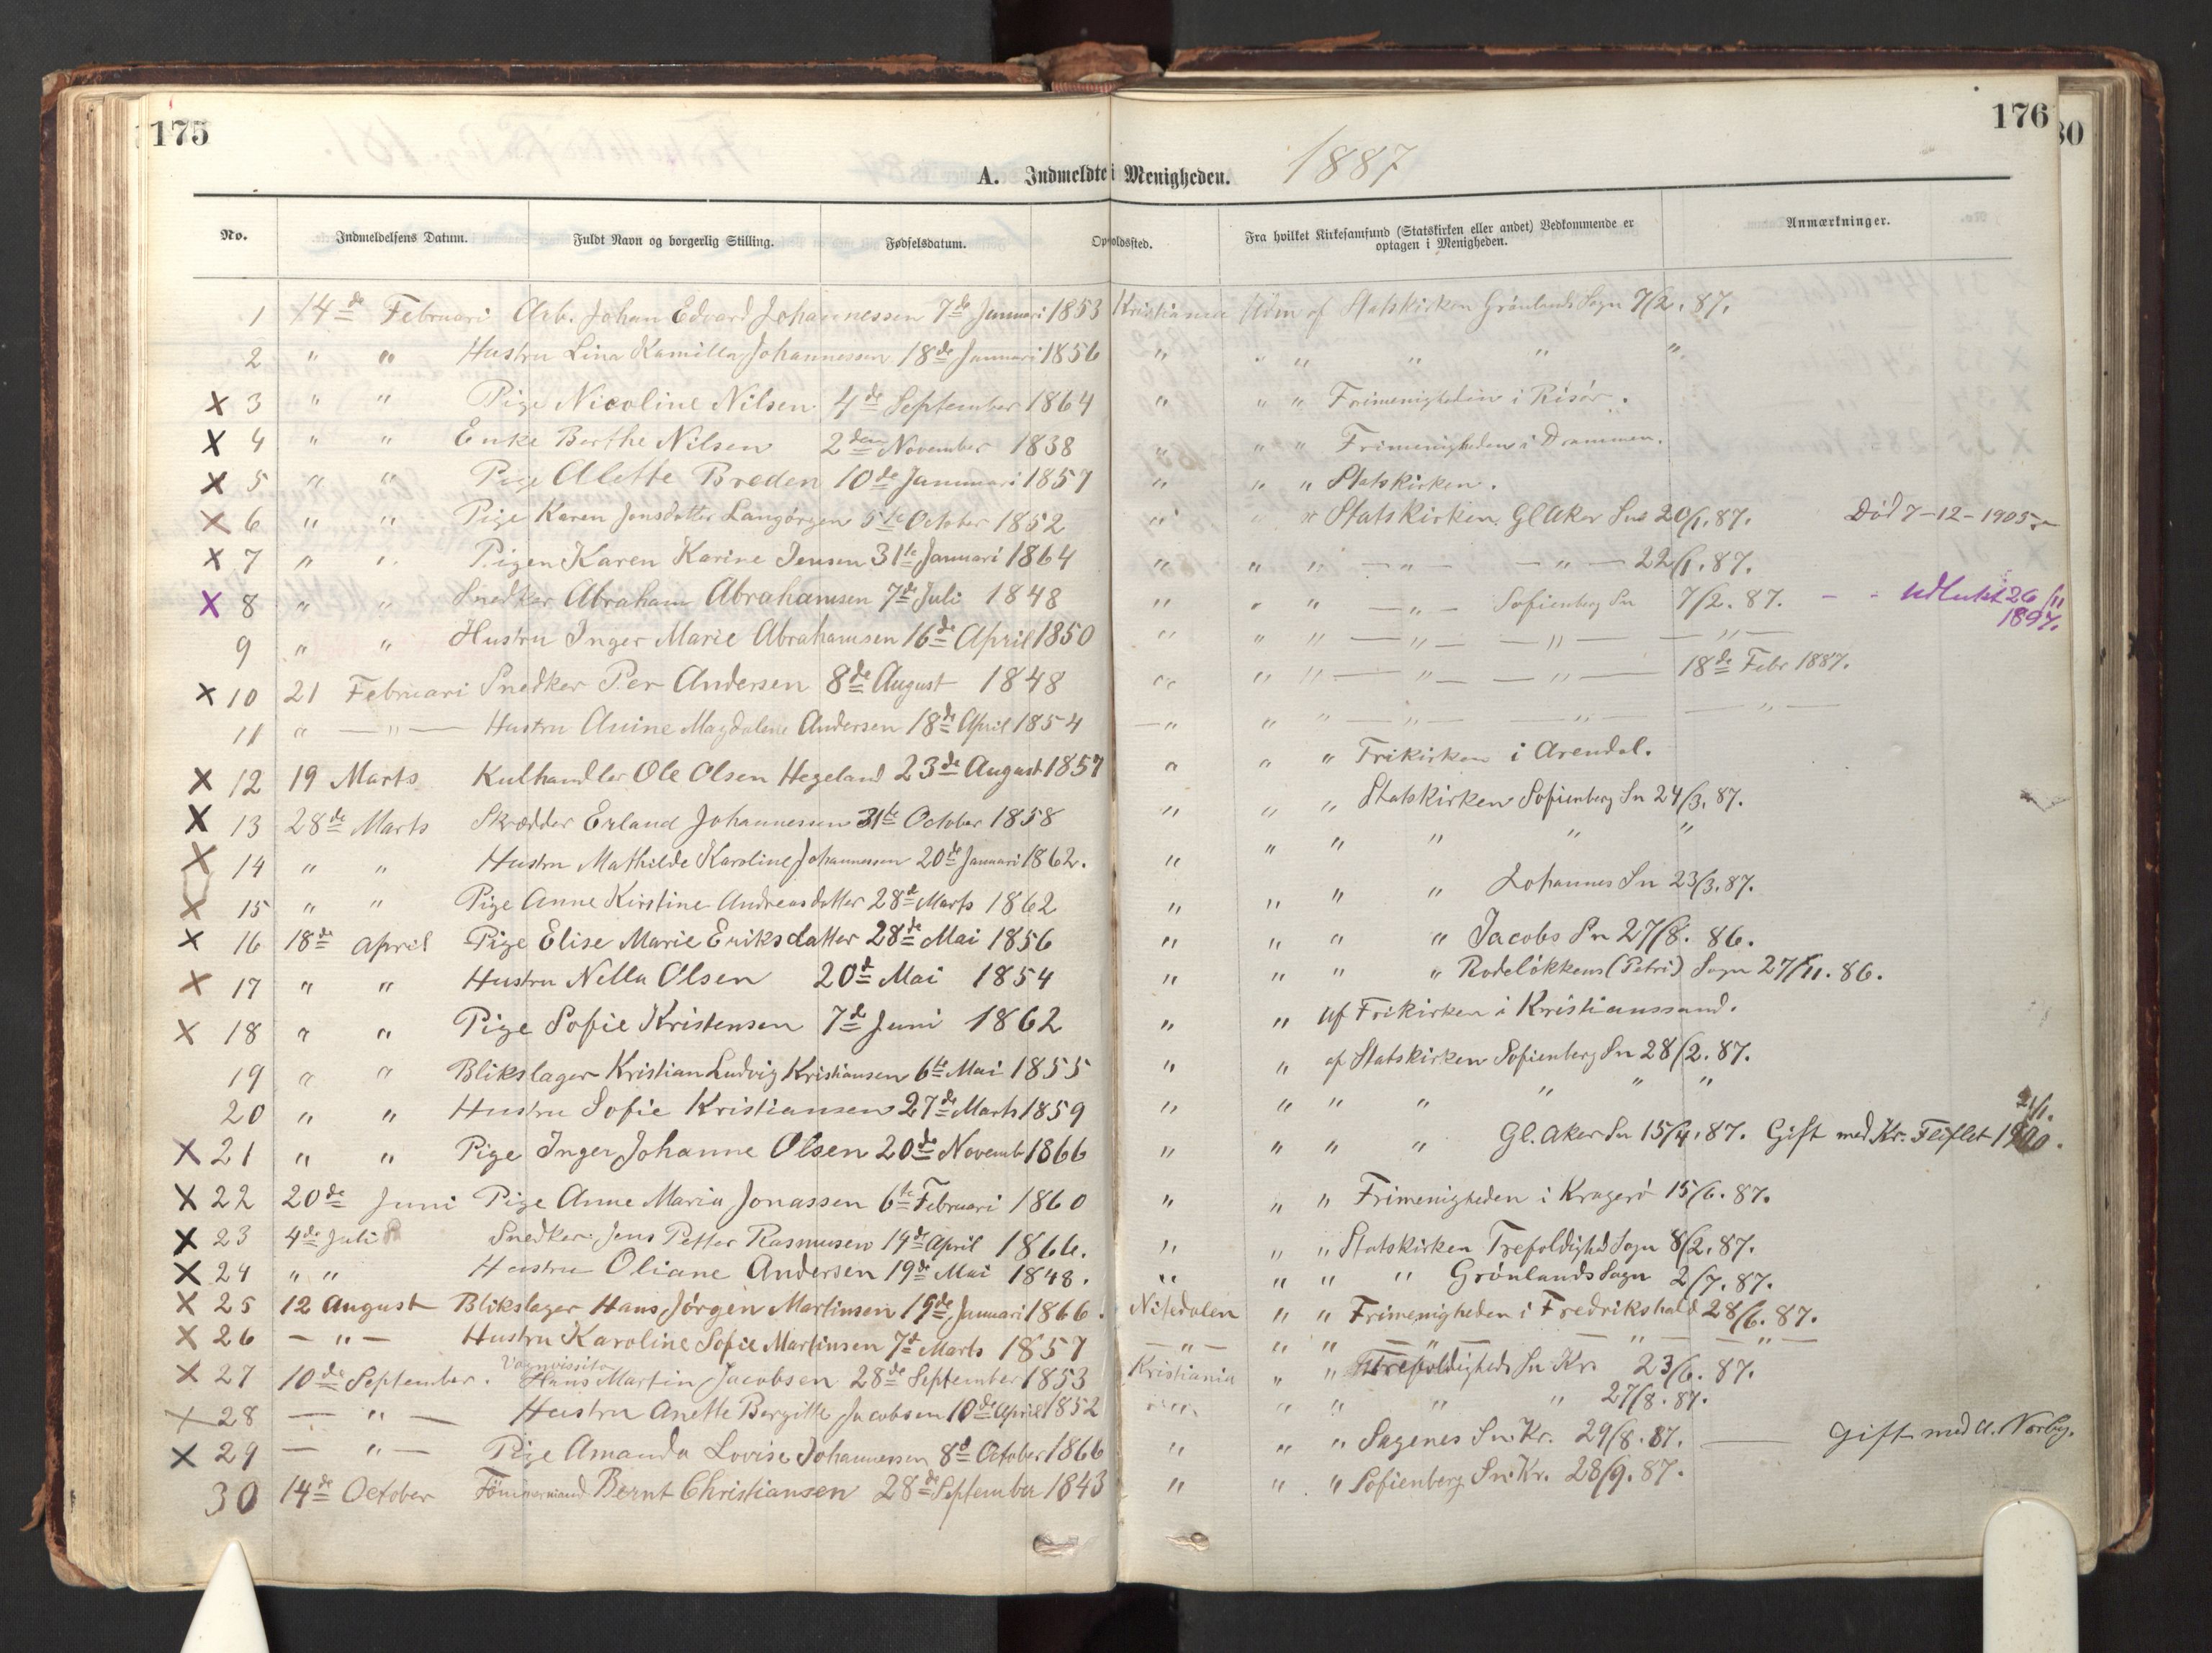 175
176
30
A. Indmeldte i Menigheden. 1887
No. Indmeldelsens Datum. Fuldt Navn og borgerlig Stilling. Fødselsdatum. Opholdssted. Fra hvilket Kirkesamfund (Statskirken eller andet) Vedkommende er optagen i Menigheden. Anmærkninger.
1 14de Februari Arb. Johan Edvard Johannessen 7de Januari 1853 Kristiania Udm af Statskirken Grønlands Sogn 7/2. 87.
2 " " Hustru Lina Kamilla Johannessen 18de Januari 1856 " " " " " "
X 3 " " Pige Nicoline Nilsen 4de September 1864 " " " Frimenigheden i Risør.
X 4 " " Enke Berthe Nilsen 2den November 1838 " " " Frimenigheden i Drammen.
X 5 " " Pige Alette Breden 10de Januari 1857 " " " Statskirken.
X 6 " " Pige Karen Jonsdatter Langørgen 5te October 1852 " " " Statskirken. Gl Aker Sn 20/1. 87. Död 7-12-1905
X 7 " " Pigen Karen Karine Jensen 31te Januari 1864 " " " — " — — " — 22/1. 87.
X 8 " " Snedker Abraham Abrahamsen 7de Juli 1848 " " " — " — Sofienberg Sn 7/2. 87. - - Udlukt 26/11 1897.
9 " " Hustru Inger Marie Abrahamsen 16de April 1850 " " " — " — — " — — " —
X 10 21 Februari Snedker Per Andersen 8de August 1848 " " " — " — — " — 18de Febr 1887.
11 " — " — Hustru Anine Magdalene Andersen 18de April 1854 — " " " — " — — " — — " —
X 12 19 Marts Kulhandler Ole Olsen Hegeland 23de August 1857 " " " Frikirken i Arendal.
X 13 28de Marts Skrædder Erland Johannessen 31te October 1858 " " " Statskirken Sofienberg Sn 24/3. 87.
X 14 " " Hustru Mathilde Karoline Johannessen 20de Januari 1862. " " " " " "
X 15 " " Pige Anne Kirstine Andreasdatter 28de Marts 1862 " " " " Johannes Sn 23/3. 87.
X 16 18de April Pige Elise Marie Eriksdatter 28de Mai 1856 " " " " Jacobs Sn 27/8. 86.
X 17 " " Hustru Nella Olsen 20de Mai 1854 " " " " Rodeløkkens (Petri) Sogn 27/11. 86.
X 18 " " Pige Sofie Kristensen 7de Juni 1862 " " af Frikirken i Kristianssand.
19 " " Blikslager Kristian Ludvig Kristiansen 6te Mai 1855 " " af Statskirken Sofienberg Sn 28/2. 87.
20 " " Hustru Sofie Kristiansen 27de Marts 1859 " " " " " " "
X 21 " " Pige Inger Johanne Olsen 20de Novemb 1866 " " " " Gl. Aker Sn 15/4. 87. Gift med Kr. Fliflet 21/1. 1900.
X 22 20de Juni Pige Anne Maria Jonassen 6te Februari 1860 " " " Frimenigheden i Kragerø 15/6. 87.
X 23 4de Juli Snedker Jens Petter Rasmusen 19de April 1866. " " " Statskirken Trefoldighed Sogn 8/2. 87.
X 24 " " Hustru Oliane Andersen 19de Mai 1848. " " " " Grønlands Sogn 2/7. 87.
X 25 12 August Blikslager Hans Jørgen Martinsen 19de Januari 1866. Nitedalen " " Frimenigheden i Fredrikshald 28/6. 87.
X 26 — " — Hustru Karoline Sofie Martinsen 7de Marts 1857 — " — " " — " — — " — — " —
X 27 10de September. Hans Martin Jacobsen 28de September 1853 Kristiania " " Trefoldigheds Sn Kr. 23/6. 87.
X 28 — " — Hustru Anette Bergitte Jacobsen 10de April 1852 " " " " " 27/8. 87.
X 29 — " — Pige Amanda Lovise Johannessen 8de October 1866 " " " Sagenes Sn. Kr. 29/8. 87. — Gift med A. Norby.
30 14de October Tömmermand Bernt Christiansen 28de September 1843 " " " Sofienberg Sn. Kr. 28/9. 87.